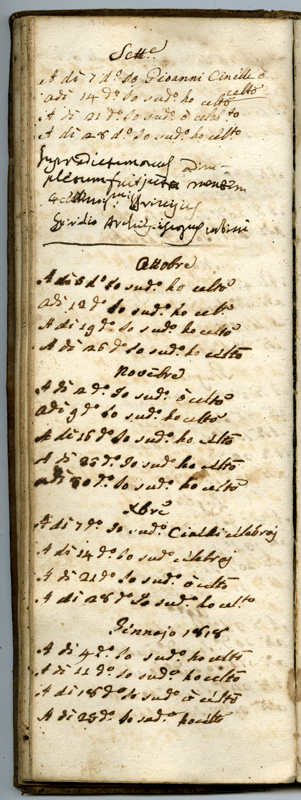 Sett.e
A di 7 d.o Io Gioanni Cinelli ò
celto
adi 14 d.o Io sud.o ho celto
A di 21 d.o Io sud.o ò celto
A di 28 d.o Io sud.o ho celto
Supradictum onus adim-
pletum fuit mensem
Archipresbyter
Ottobre
A di 5 d.o Io sud.o ho celto
adi 12 d.o Io sud.o ho celto
A di 19 d.o Io sud.o ho celto
A di 26 d.o Io sud.o ho celto
Novebre
A di 2 d.o Io sud.o ò celto
adi 9 d.o Io sud.o ho celto
A di 16 d.o Io sud.o ho celto
A di 23 d.o Io sud.o ho celto
adi 30 d.o Io sud.o ho celto
Xbre
A di 7 d.o Io sud.o Cinelli celebraj
A di 14 d.o Io sud.o celebraj
A di 21 d.o Io sud.o ò celto
A di 28 d.o Io sud.o ho celto
Gennajo 1818
A di 4 d.o Io sud.o ho celto
A di 11 d.o Io sud.o ho celto
A di 18 d.o Io sud.o ò celto
A di 25 d.o Io sud.o ho celto